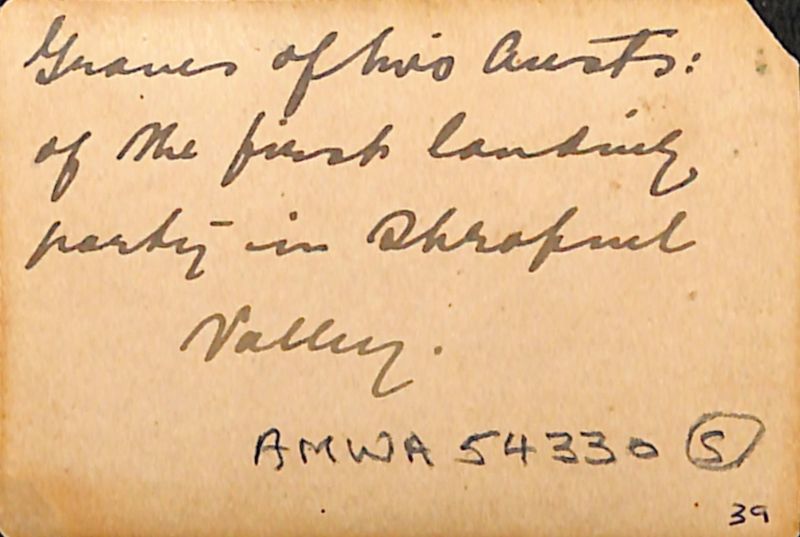 Graves of two Austs:
of the first landing
party - in Shrapnel
Valley.
AMWA 54330 S
39